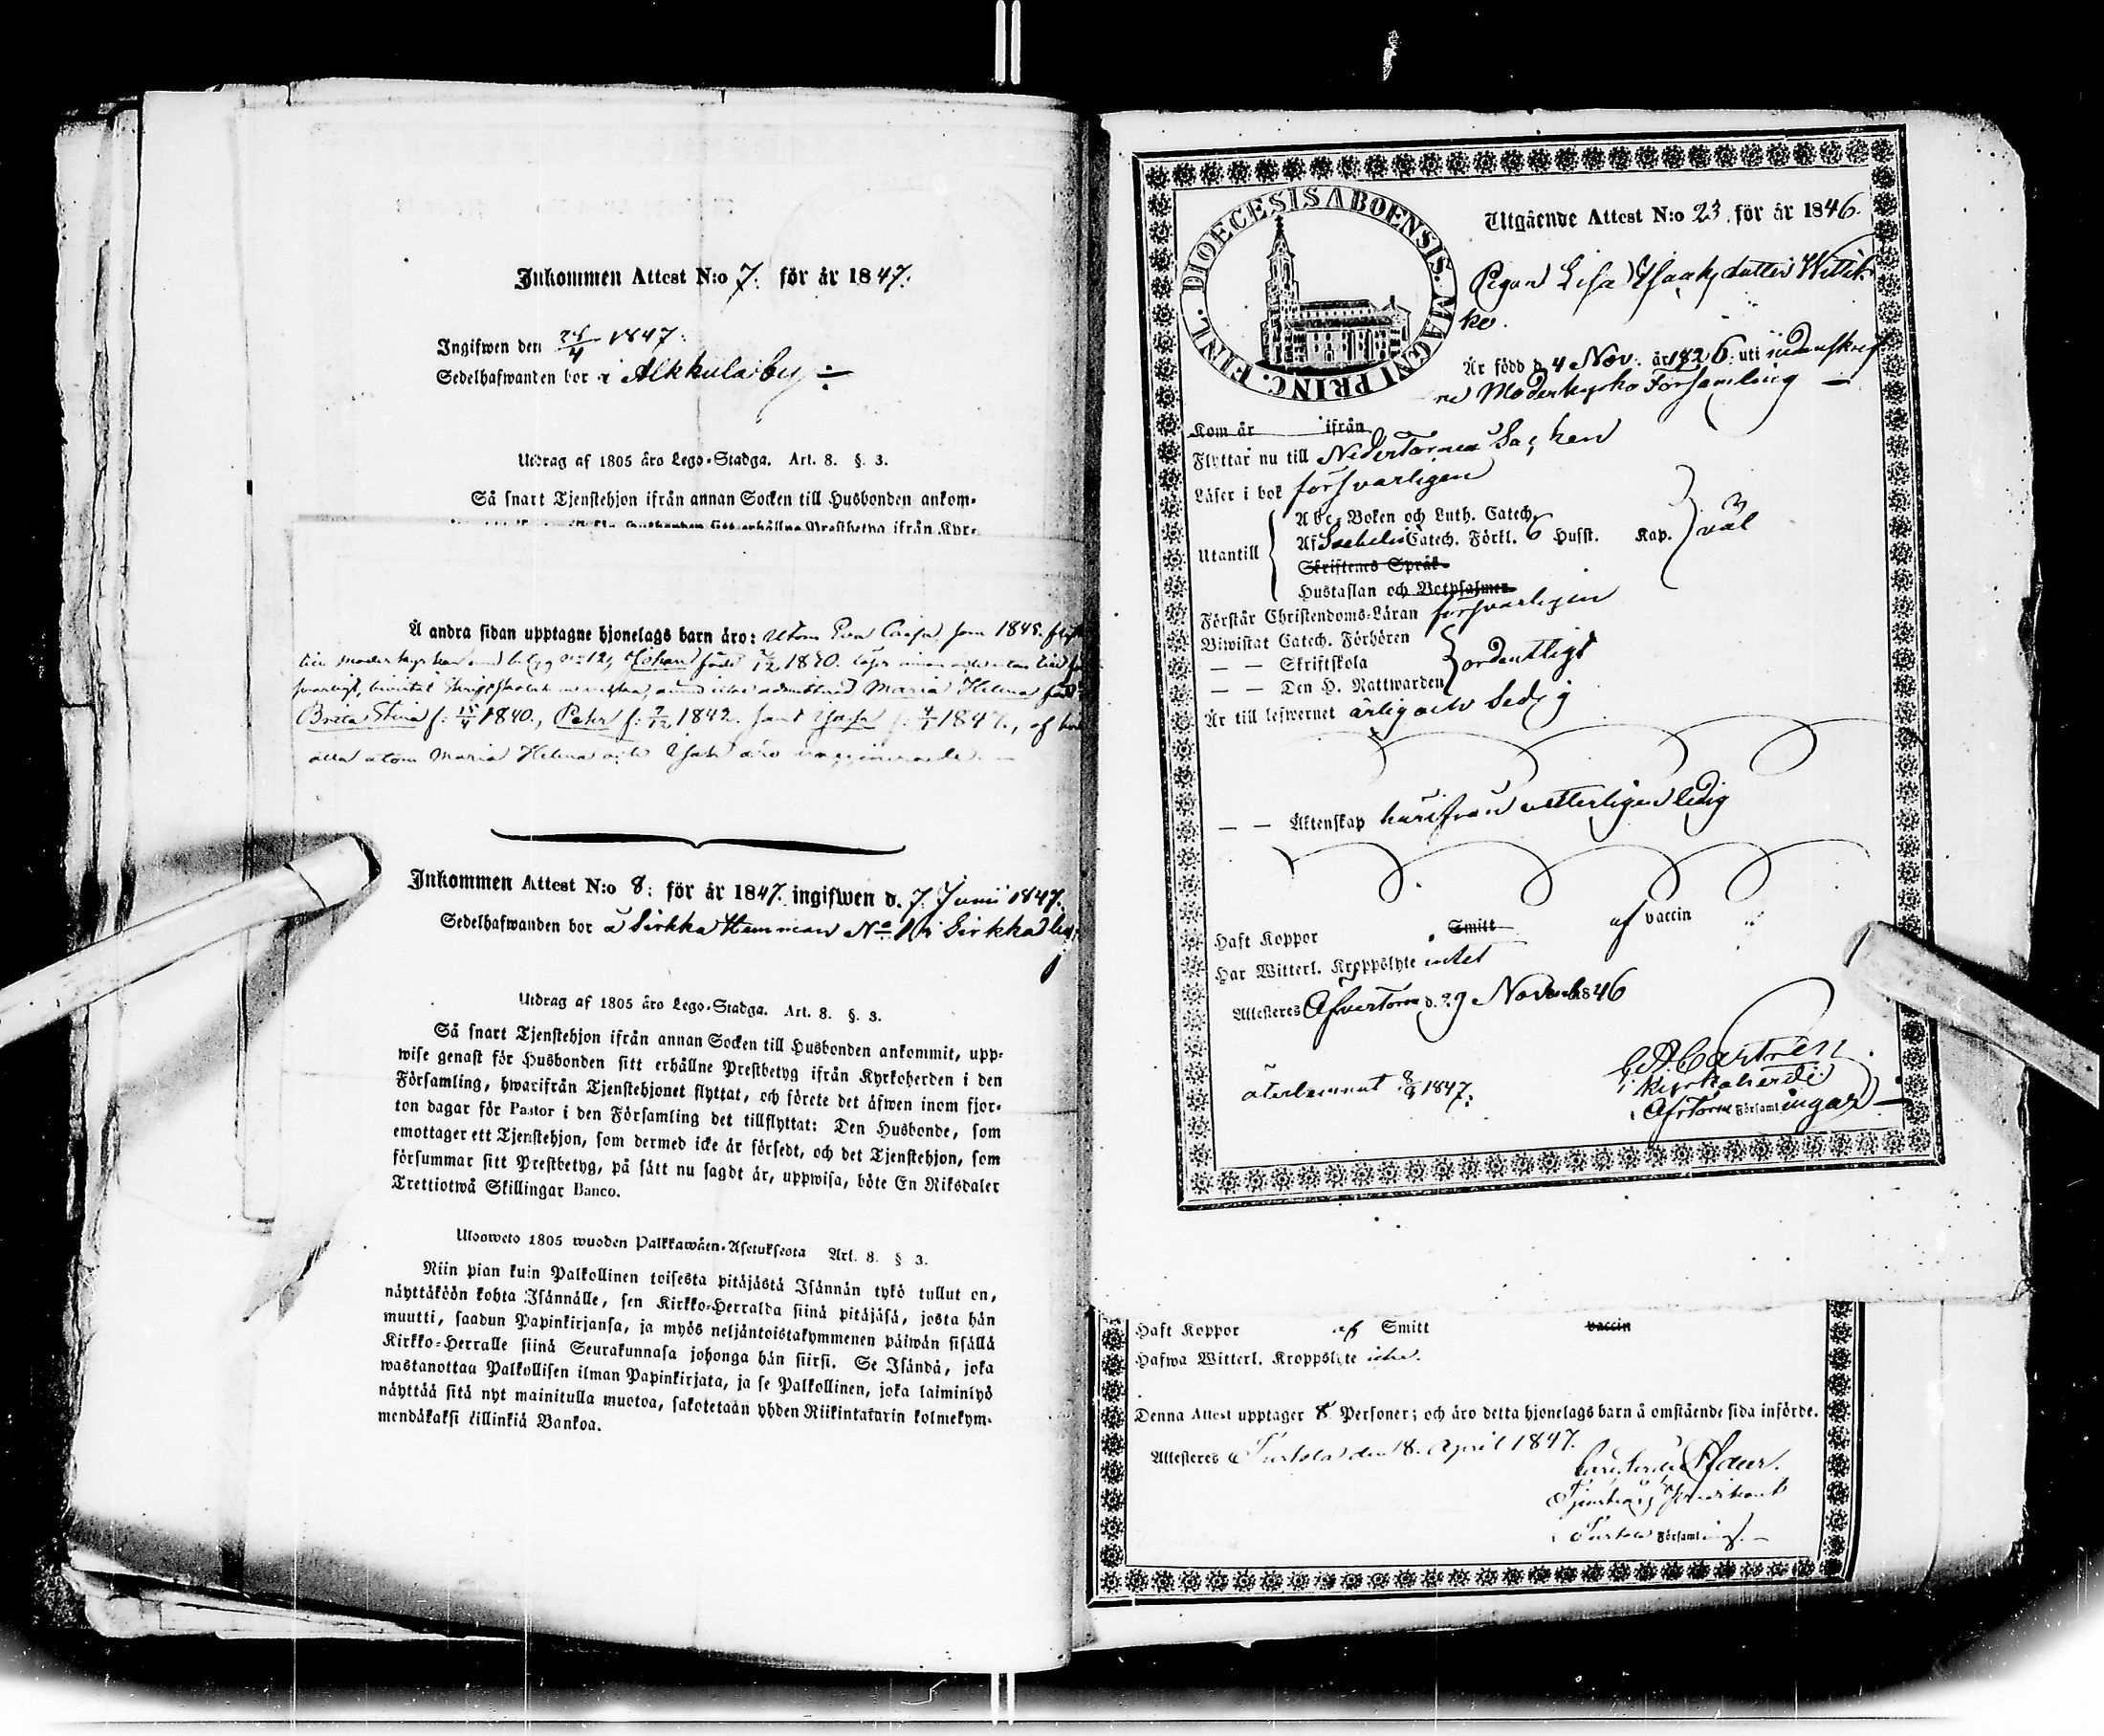 Inkommen Attest N:o 7. för år 1847.
Ingifwen den 24/4 1847.
Sedelhafwanden bor i Alkkula by
Utdrag af 1805 års Lego-Stadga. Art. 8. §. 3.
Så snart Tjenstehjon ifrån annan Socken till Husbonden ankom-
sitt erhållne Prestbetyg ifrån Kyr-
Å andra sidan upptagne hjonelags barn äro: Utom Eva Caisa som 1845
till moderkyrkan Johan född 1840.
Maria Helena född
Brita Stina f. 15/4 1840., Peter f. 2/12 1842. samt Isak f. 4/1 1847., af
alla utom Maria Helena och Isak äro vaccinerade.
Inkommen Attest N:o 8: för år 1847. ingifwen d. 7 Junii 1847.
Sedelhafwanden bor å Sirkka Hemman No 1 i Sirkka by
Utdrag af 1805 års Lego-Stadga. Art. 8. §. 3.
Så snart Tjenstehjon ifrån annan Socken till Husbonden ankommit, upp-
wise genast för Husbonden sitt erhållne Prestbetyg ifrån Kyrkoherden i den
Församling, hwarifrån Tjenstehjonet flyttat, och förete det äfwen inom fjor-
ton dagar för Pastor i den Församling det tillflyttat: Den Husbonde, som
emottager ett Tjenstehjon, som dermed icke är försedt, och det Tjenstehjon, som
försummar sitt Prestbetyg, på sätt nu sagdt är, uppwisa, böte En Riksdaler
Trettiotwå Skillingar Banco.
Ulosweto 1805 wuoden Palkkawäen-Asetuksesta Art. 8. § 3.
Niin pian kuin Palkollinen toisesta pitäjästä Isännän tykö tullut on,
näyttäköön kohta Isännälle, sen Kirkko-Herralda siinä pitäjäsä, josta hän
muutti, saadun Papinkirjansa, ja myös neljäntoistakymmenen päiwän sisällä
Kirkko-Herralle siinä Seurakunnasa johonga hän siirsi. Se Isändä, joka
wastanottaa Palkollisen ilman Papinkirjata, ja se Palkollinen, joka laiminlyö
näyttää sitä nyt mainitulla muotoa, sakotetaan yhden Riikintalarin kolmekym-
mendäkaksi killinkiä Bankoa.
DIOECESIS ABOENSIS. MAGNI PRINC. FINL.
Utgående Attest N:o 23. för år 1846.
Pigan Lisa Isaksdotter Wittik-
ko.
Är född d. 4 Nov. år 1826. uti nedanskref-
ne Moderkyrko Församling
Kom år ifrån
Flyttar nu till Nedertornea Socken
Läser i bok försvarligen
Utantill
Abc-Boken och Luth. Catech.
Af Svebelii Catech. Förkl. 6 Husst. Kap.
väl
Skriftenes Språk
Hustaflan och Botpsalmer
Förstår Christendoms-Läran försvarligen
Biwistat Catech. Förhören
— — Skriftskola
ordentligt
— — Den H. Nattwarden
Är till lefwernet ärlig och sedig
— — Äktenskap härifrån vetterligen ledig
Haft Koppor Smitt af vaccin
Har Witterl. Kroppslyte intet
Attesteres Öfvertorne d. 29 Novemb. 1846
C. A. Castrén
Kyrkoherde
i Öfvtorne Församlingar
återlemnat 8/9 1847.
Haft Koppor af Smitt vaccin
Hafwa Witterl. Kroppslyte icke.
Denna Attest upptager 8 Personer; och äro detta hjonelags barn å omstående sida införde.
Attesteres Turtola den 18. April 1847.
i Turtola Församling.